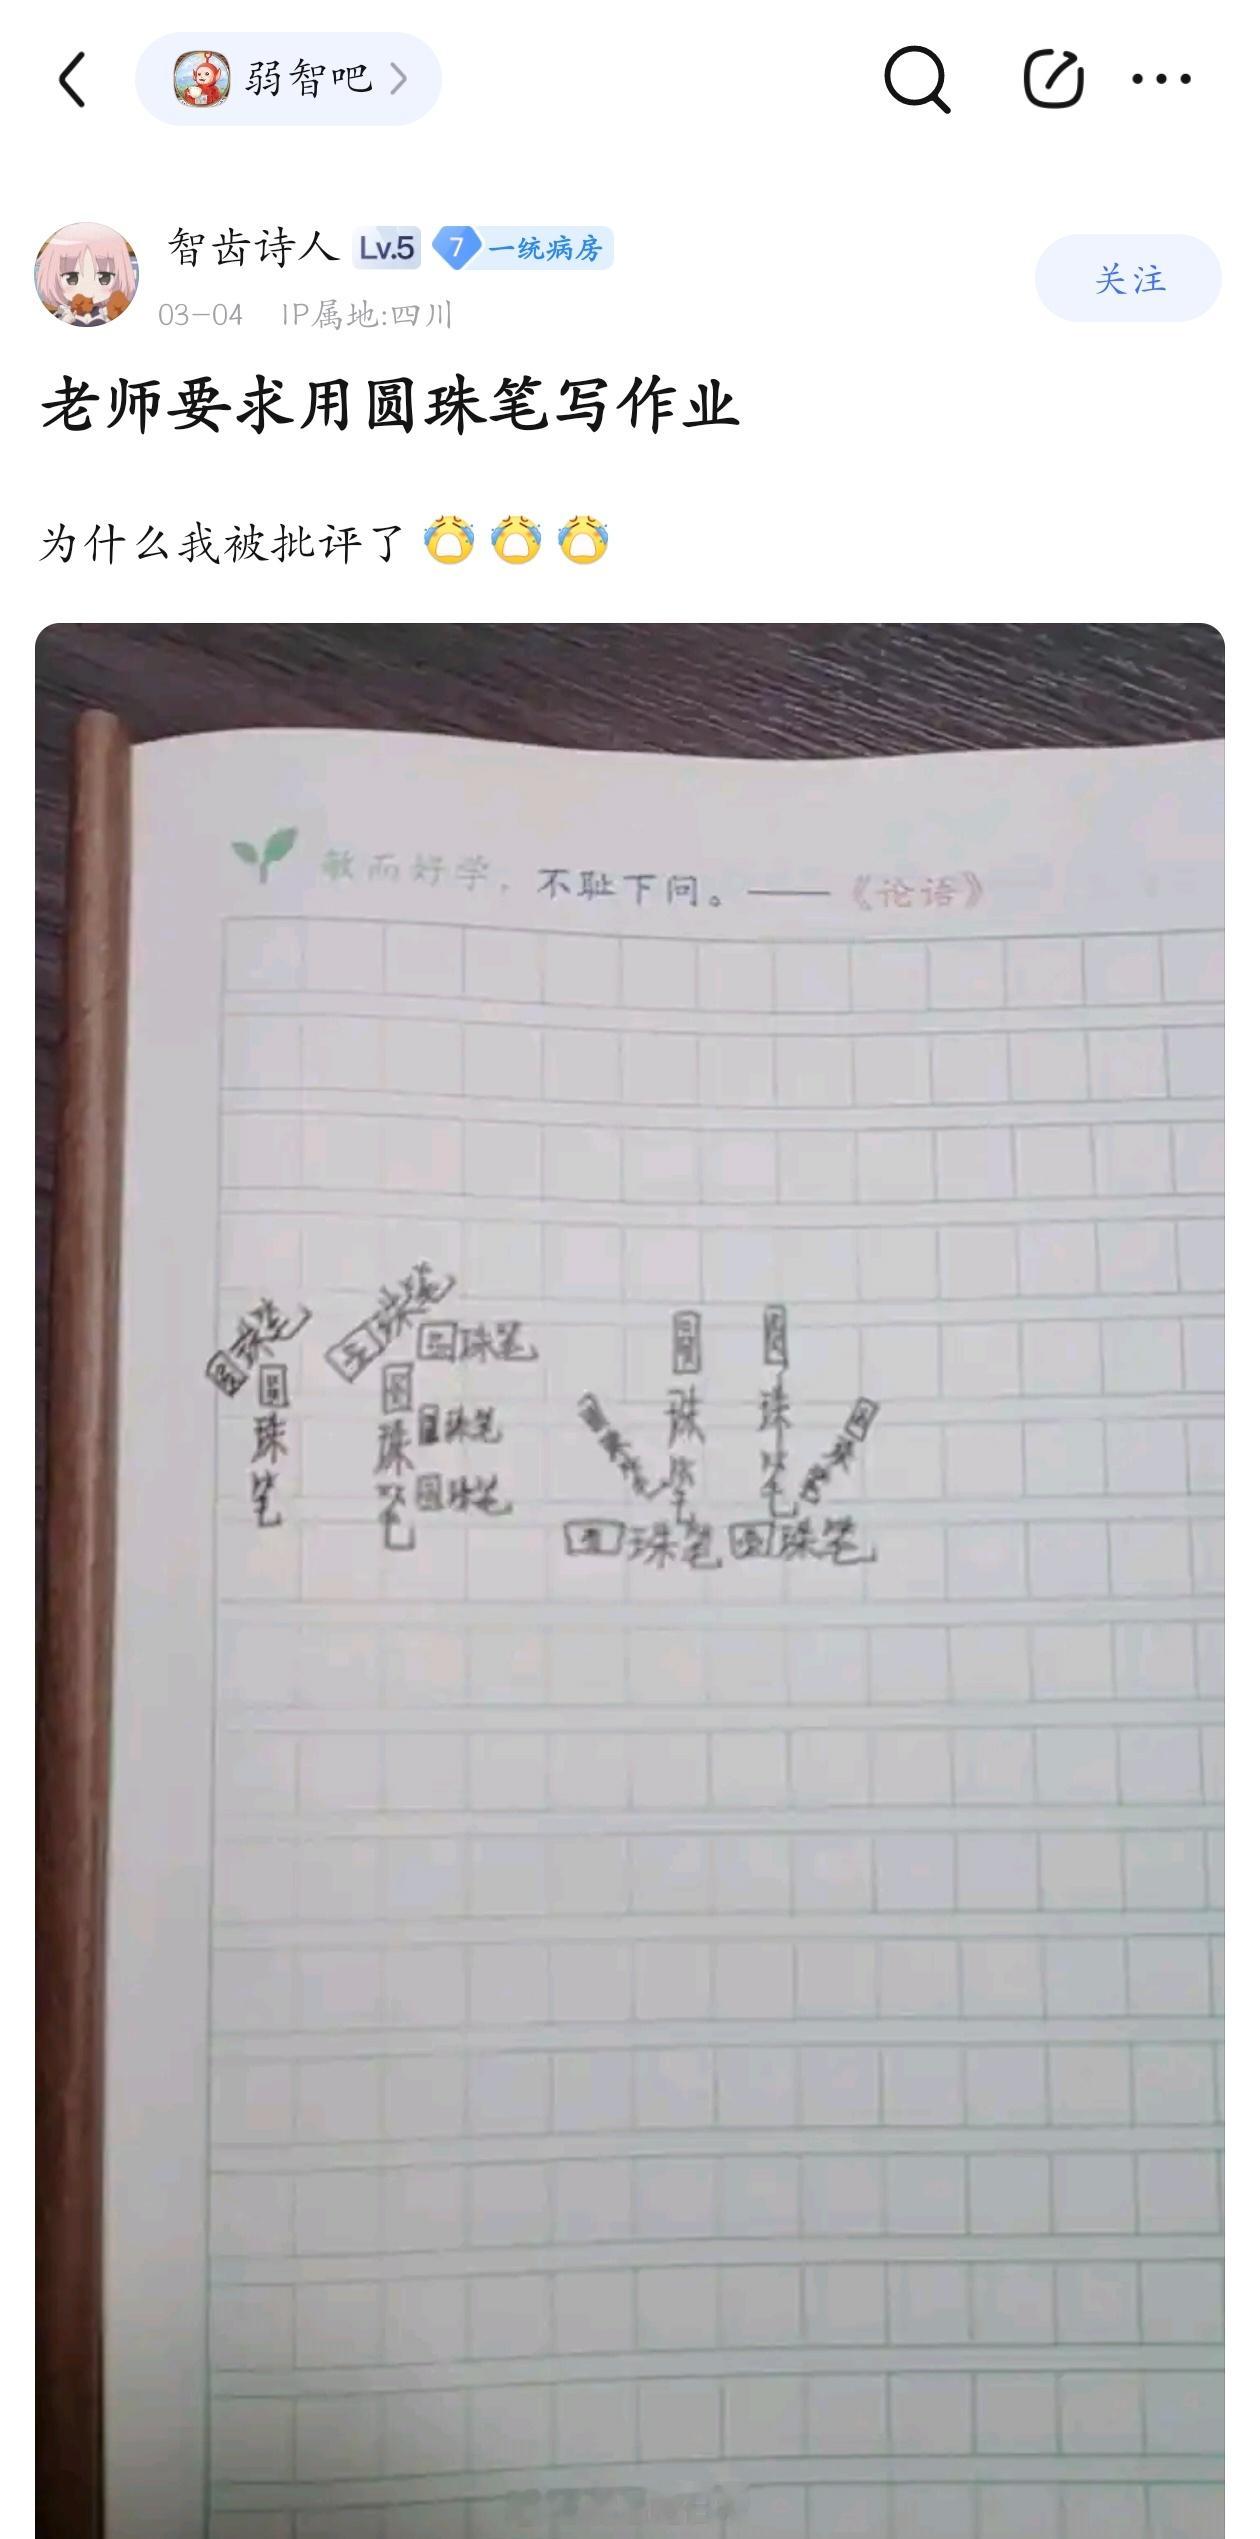 弱智吧
智齿诗人 Lv.5 7 一统病房
03-04 IP属地:四川
关注
老师要求用圆珠笔写作业
为什么我被批评了
敏而好学,不耻下问。——《论语》
圆珠笔 圆珠笔
圆珠笔 圆珠笔
圆珠笔 圆珠笔 圆珠笔
圆珠笔 圆珠笔
圆珠笔 圆珠笔
圆珠笔 圆珠笔